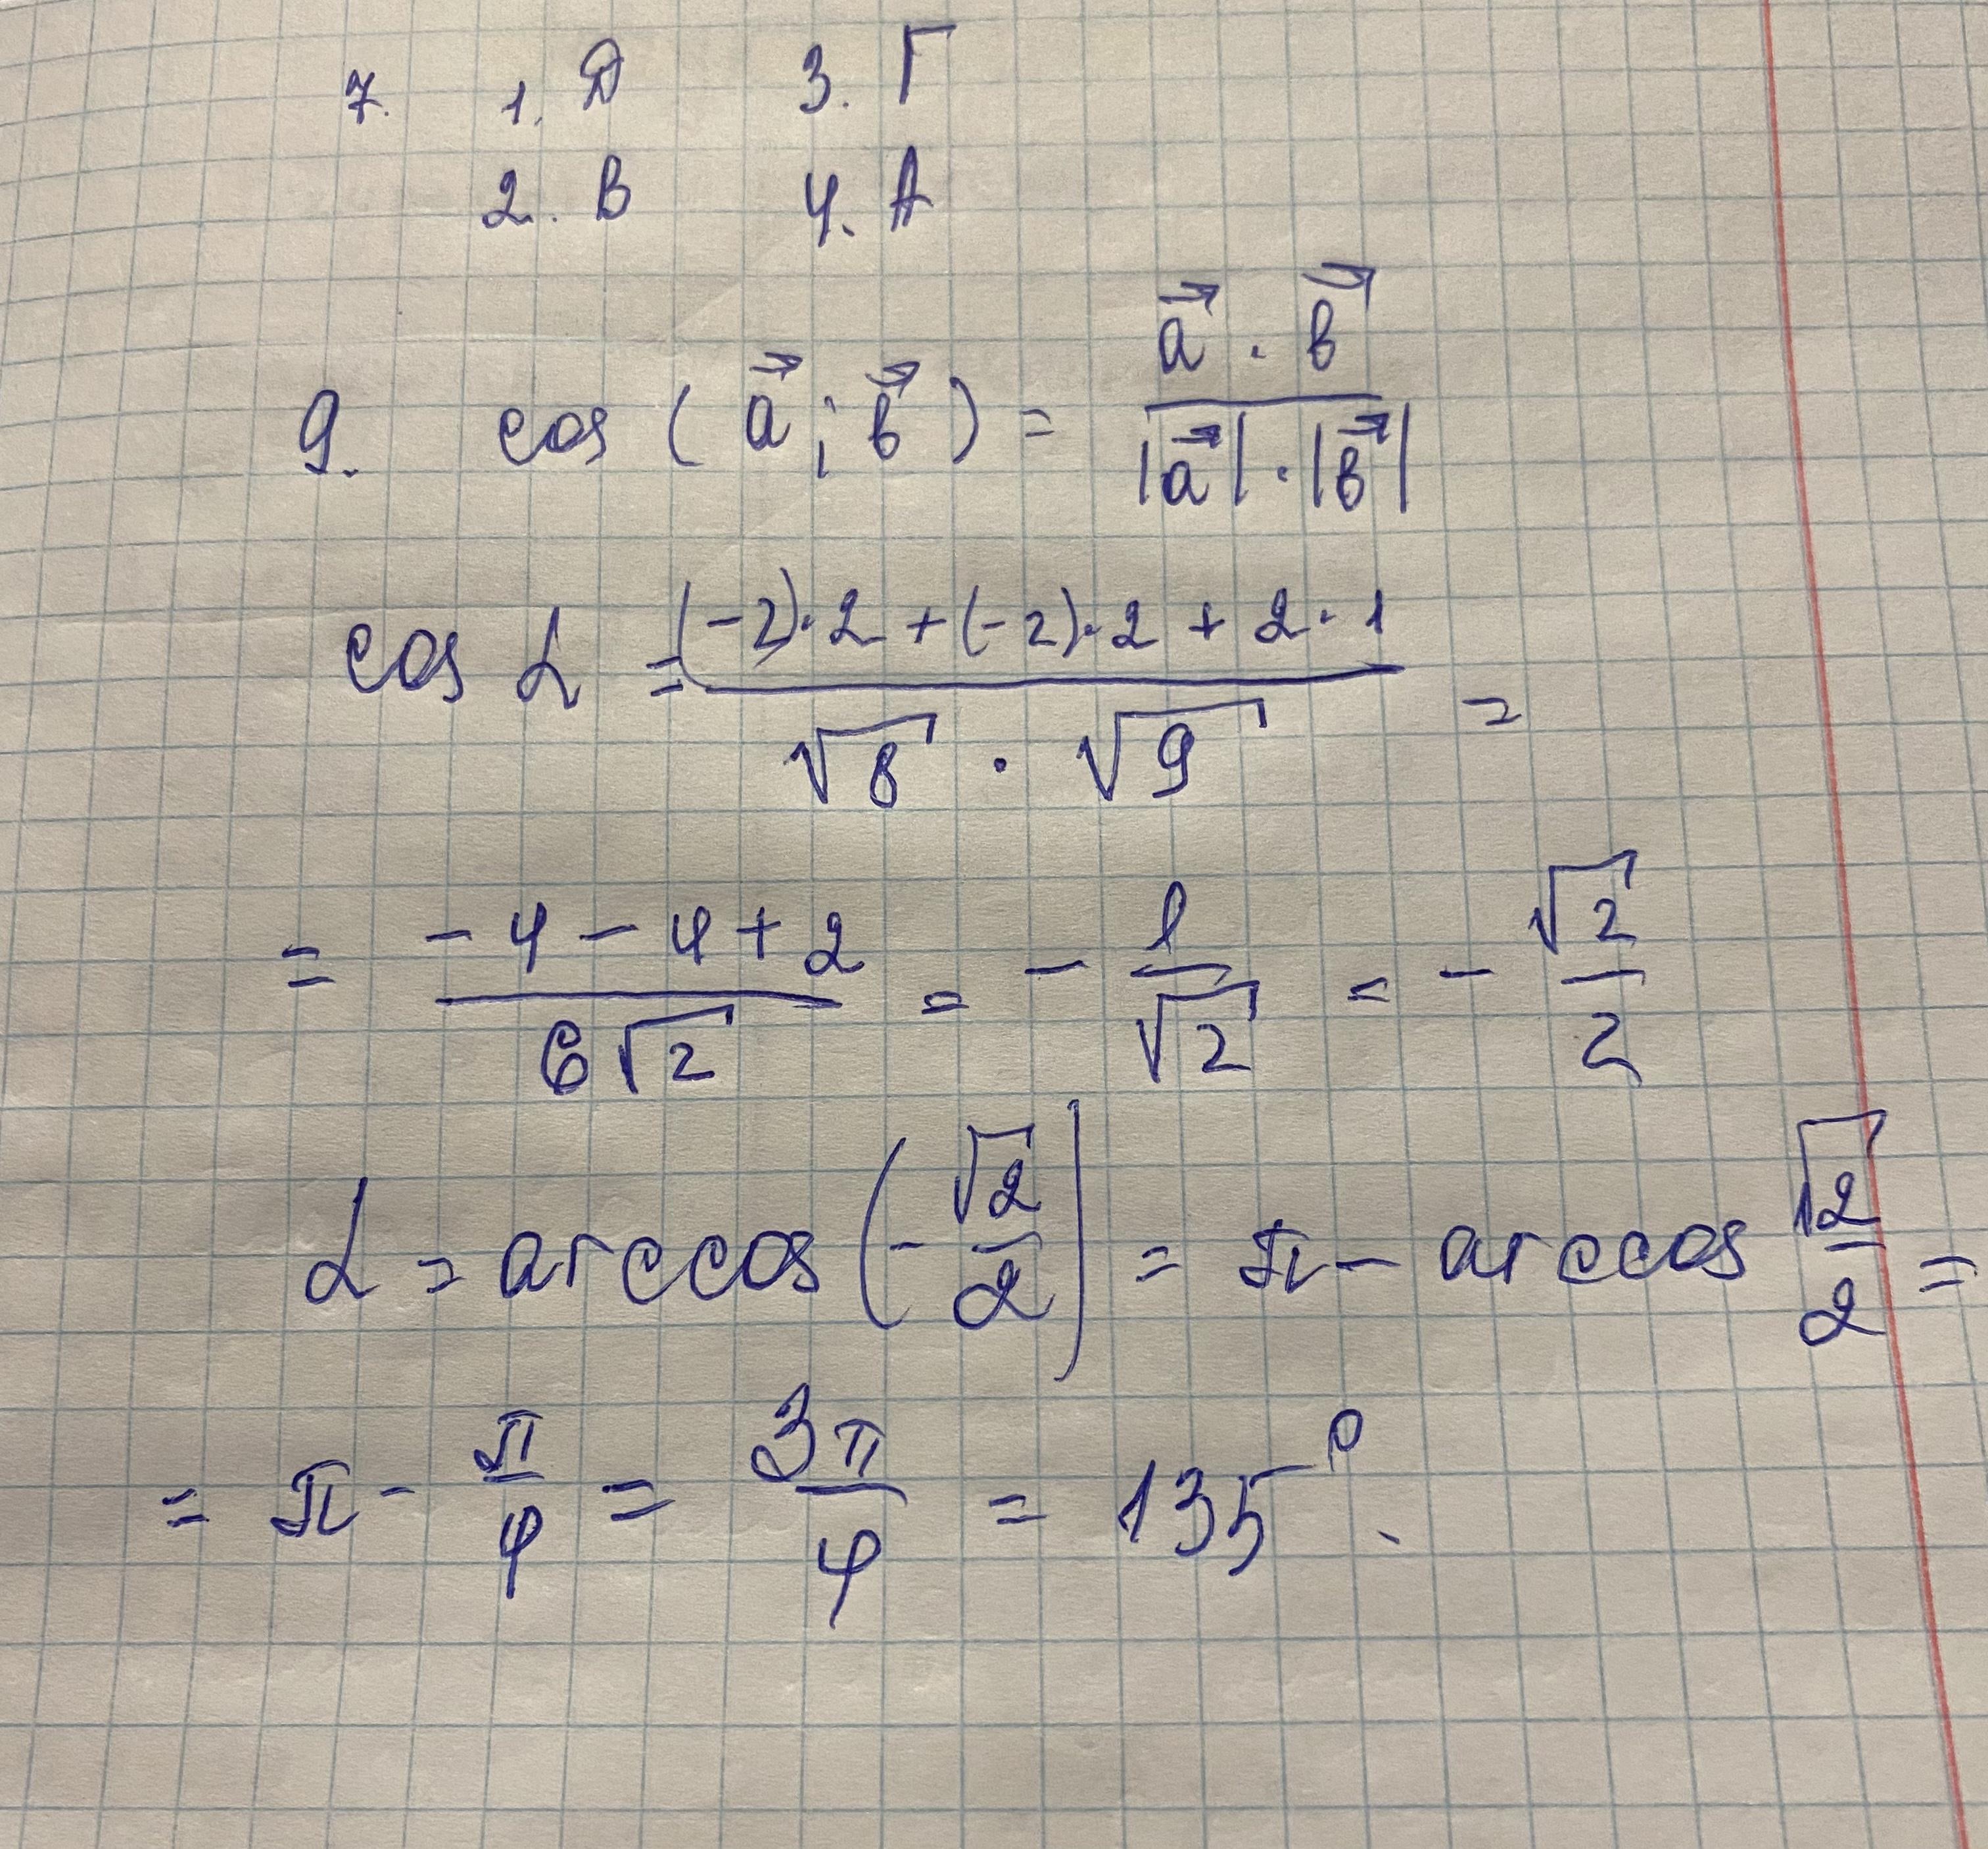 7. 1. Д 3. Г
2. В 4. А
9. cos (a⃗ ; b⃗) = (a⃗ · b⃗) / (|a⃗| · |b⃗|)
cos α = ((-2)·2 + (-2)·2 + 2·1) / (√8 · √9) =
= (-4 - 4 + 2) / (6√2) = - 1/√2 = - √2/2
α = arccos (-√2/2) = π - arccos √2/2 =
= π - π/4 = 3π/4 = 135°.